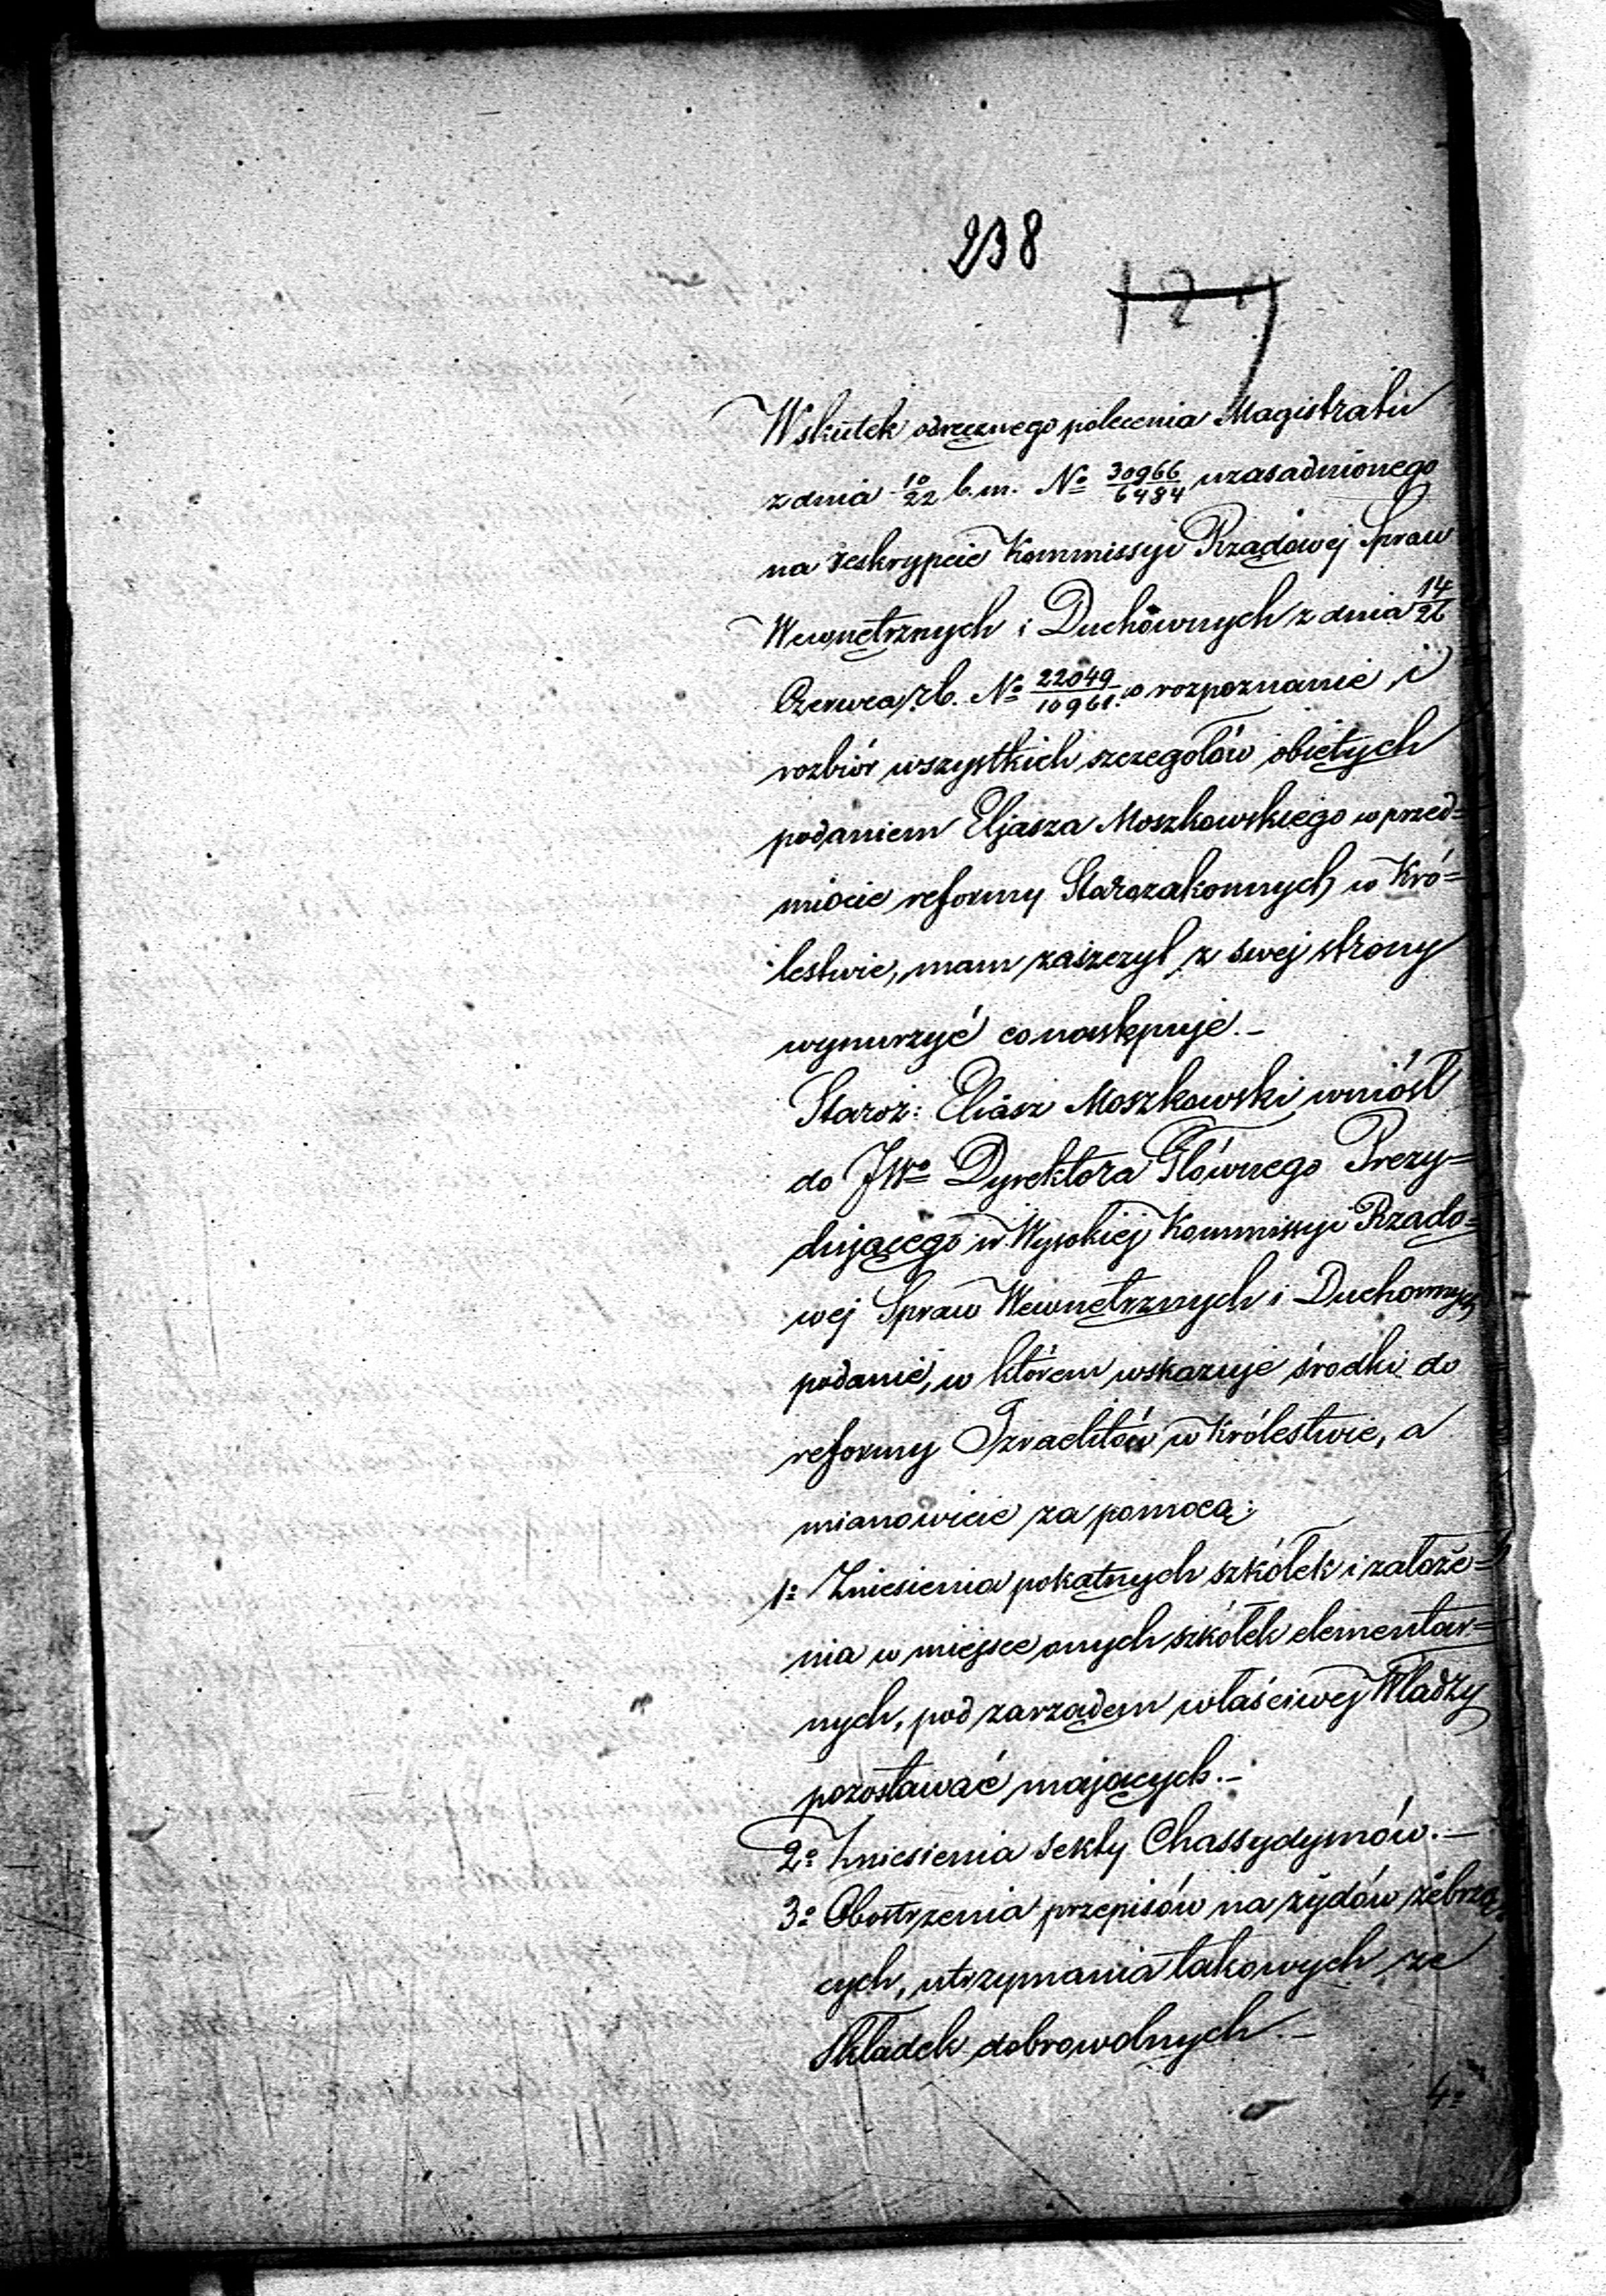 238
127
Wskutek odręcznego polecenia Magistratu
z dnia 10/22 b.m. No 30966/6484 uzasadnionego
na reskrypcie Kommissyi Rządowej Spraw
Wewnętrznych i Duchównych z dnia 14/26
Czerwca r.b. No 22049/10961. o rozpoznanie i
rozbiór wszystkich szczegołów obiętych
podaniem Eljasza Moszkowskiego w przed=
miocie reformy Starozakonnych w Kró=
lestwie, mam zaszczyt z swej strony
wynurzyć co następuje.—
Staroz: Eliasz Moszkowski wniósł
do JWo Dyrektora Głównego Prezy=
dującego w Wysokiej Kommissyi Rządo=
wej Spraw Wewnętrznych i Duchownych
podanie, w którem wskazuje środki do
reformy Izraelitów w Królestwie, a
mianowicie za pomocą:
1o Zniesienia pokątnych szkółek i założe=
nia w miejsce onych szkółek elementar=
nych, pod zarządem właściwej Władzy
pozostawać mających.—
2o Zniesienia sekty Chassydymów.—
3o Obostrzenia przepisów na żydów żebrzą=
cych, utrzymania takowych ze
Składek dobrowolnych.—
4o